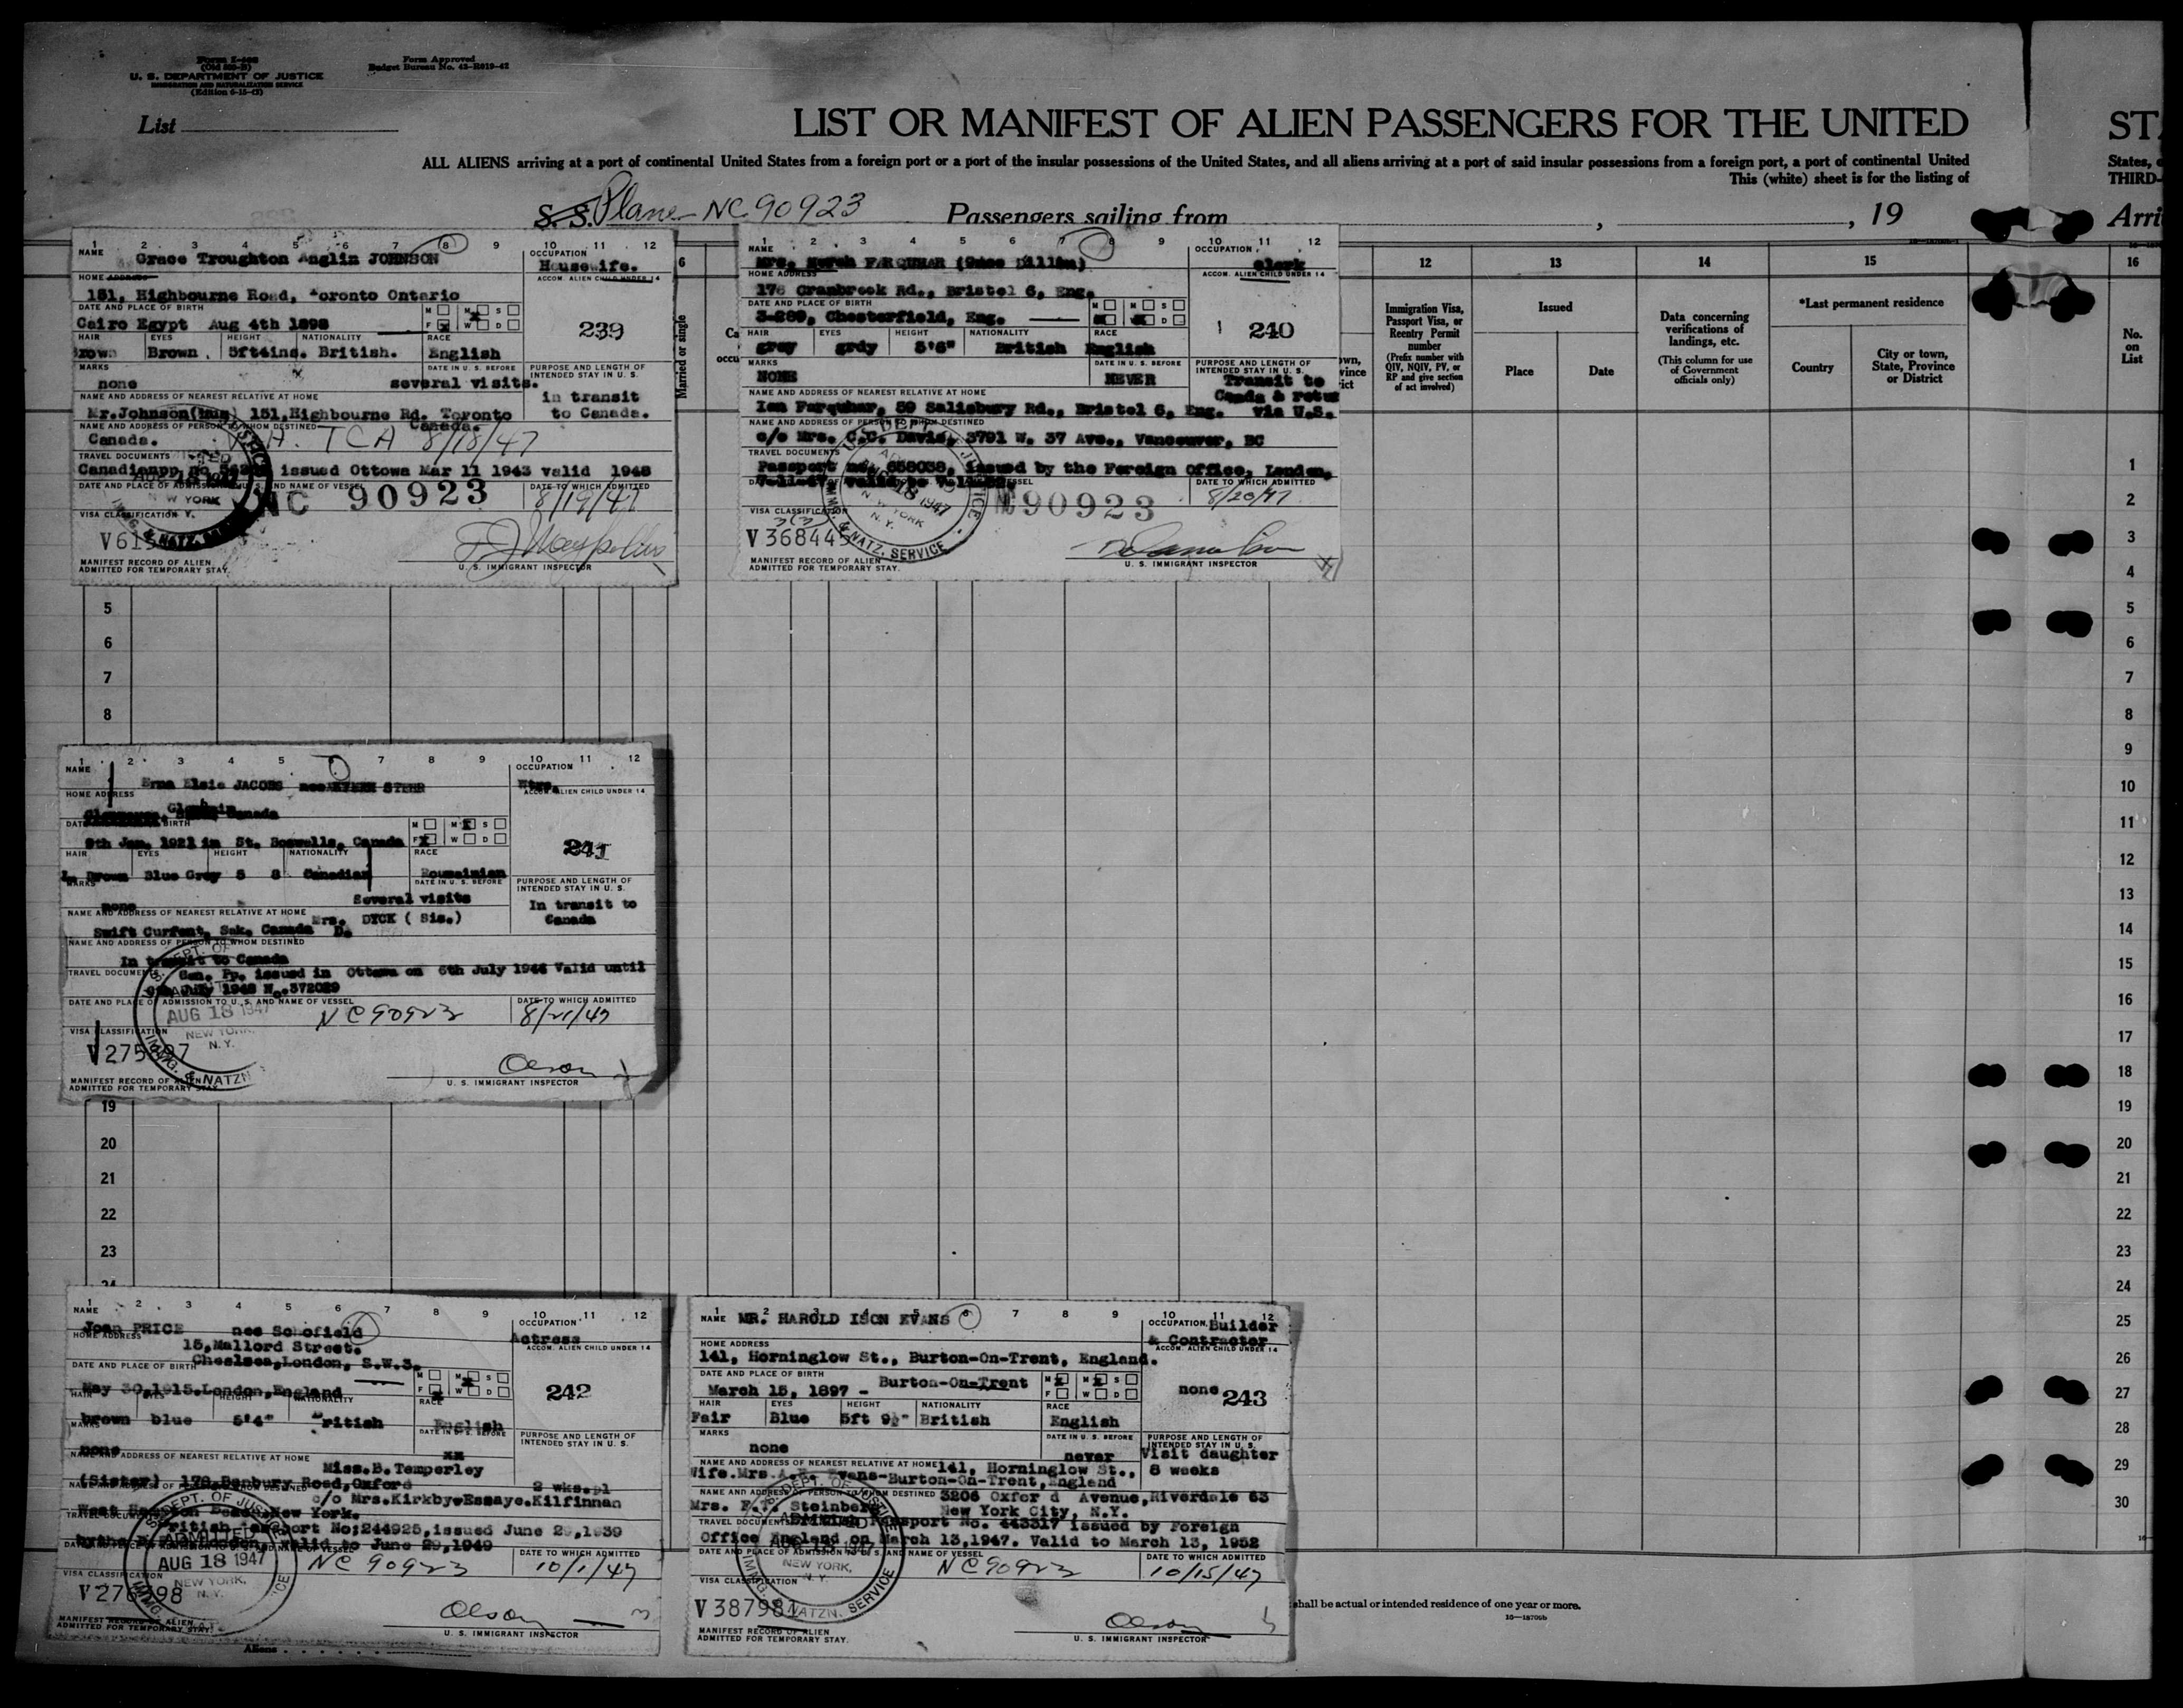 Form I-466
(Old 500-B)
U. S. DEPARTMENT OF JUSTICE
IMMIGRATION AND NATURALIZATION SERVICE
(Edition 6-15-43)
Form Approved
Budget Bureau No. 43-R019-42
List
LIST OR MANIFEST OF ALIEN PASSENGERS FOR THE UNITED
ST
ALL ALIENS arriving at a port of continental United States from a foreign port or a port of the insular possessions of the United States, and all aliens arriving at a port of said insular possessions from a foreign port, a port of continental United
States,
This (white) sheet is for the listing of
THIRD-
S. S. Plane NC 90923 Passengers sailing from , , 19
Arri
1 2 3 4 5 6 7 8 9 10 11 12
NAME Grace Troughton Anglin JOHNSON
OCCUPATION Housewife.
HOME ADDRESS
ACCOM. ALIEN CHILD UNDER 14
151, Highbourne Road, Toronto Ontario
DATE AND PLACE OF BIRTH
M M S
F W D
Cairo Egypt Aug 4th 1898
239
HAIR EYES HEIGHT NATIONALITY RACE
Brown Brown 5ft4ins. British. English
MARKS
DATE IN U. S. BEFORE
PURPOSE AND LENGTH OF INTENDED STAY IN U. S.
none several visits.
in transit to Canada.
NAME AND ADDRESS OF NEAREST RELATIVE AT HOME
Mr.Johnson 151,Highbourne Rd. Toronto Canada.
NAME AND ADDRESS OF PERSON TO WHOM DESTINED
Canada. TCA 8/18/47
TRAVEL DOCUMENTS
issued Ottowa Mar 11 1943 valid 1948
DATE AND PLACE OF ADMISSION TO U. S. AND NAME OF VESSEL
DATE TO WHICH ADMITTED
NC 90923 8/19/47
VISA CLASSIFICATION
U. S. IMMIGRANT INSPECTOR
MANIFEST RECORD OF ALIEN
ADMITTED FOR TEMPORARY STAY.
1 2 3 4 5 6 7 8 9 10 11 12
NAME Mrs. FARQUHAR
OCCUPATION clerk
HOME ADDRESS
ACCOM. ALIEN CHILD UNDER 14
176 Cranbrook Rd., Bristol 6, Eng.
DATE AND PLACE OF BIRTH
M M S
Chesterfield, Eng.
240
HAIR EYES HEIGHT NATIONALITY RACE
grey grdy 5'6" British English
MARKS
DATE IN U. S. BEFORE
PURPOSE AND LENGTH OF INTENDED STAY IN U. S.
NONE NEVER
Transit to
NAME AND ADDRESS OF NEAREST RELATIVE AT HOME
Ian Farquhar, 59 Salisbury Rd., Bristol 6, Eng. via U.S.
NAME AND ADDRESS OF PERSON TO WHOM DESTINED
c/o Mrs. C.C. Davis, 3791 W. 37 Ave., Vancouver, BC
TRAVEL DOCUMENTS
Passport no. 658038, issued by the Foreign Office, London,
DATE TO WHICH ADMITTED
90923 8/20/47
VISA CLASSIFICATION
V 368445
U. S. IMMIGRANT INSPECTOR
MANIFEST RECORD OF ALIEN
ADMITTED FOR TEMPORARY STAY.
6
Married or single
12 13 14 15 16
Immigration Visa, Passport Visa, or Reentry Permit number
(Prefix number with QIV, NQIV, PV, or RP and give section of act involved)
Issued
Place Date
Data concerning verifications of landings, etc.
(This column for use of Government officials only)
*Last permanent residence
Country
City or town, State, Province or District
No. on List
1
2
3
4
5
6
7
8
9
10
11
12
13
14
15
16
17
18
19
20
21
22
23
24
25
26
27
28
29
30
5
6
7
8
1 2 3 4 5 6 7 8 9 10 11 12
NAME Erna Elsie JACOBS nee STEHR
OCCUPATION
HOME ADDRESS
ACCOM. ALIEN CHILD UNDER 14
Canada
M M S
F W D
8th Jan. 1921 in St. Boswells, Canada
241
HAIR EYES HEIGHT NATIONALITY RACE
Brown Blue Grey 5 8 Canadian Roumainian
MARKS
DATE IN U. S. BEFORE
PURPOSE AND LENGTH OF INTENDED STAY IN U. S.
none Several visits
In transit to Canada
NAME AND ADDRESS OF NEAREST RELATIVE AT HOME
Mrs. D. DYCK ( Sis.)
Swift Current, Sak. Canada
NAME AND ADDRESS OF PERSON TO WHOM DESTINED
In transit to Canada
TRAVEL DOCUMENTS
Can. Pp. issued in Ottawa on 6th July 1946 Valid until
July 1948 No.372029
DATE AND PLACE OF ADMISSION TO U. S. AND NAME OF VESSEL
DATE TO WHICH ADMITTED
AUG 18 1947 NC90923 8/21/47
VISA CLASSIFICATION
Olson
U. S. IMMIGRANT INSPECTOR
MANIFEST RECORD OF ALIEN
ADMITTED FOR TEMPORARY STAY
19
20
21
22
23
24
1 2 3 4 5 6 7 8 9 10 11 12
NAME
Joan PRICE nee Schofield
OCCUPATION Actress
HOME ADDRESS
15,Mallord Street.
ACCOM. ALIEN CHILD UNDER 14
DATE AND PLACE OF BIRTH Chelsea,London, S.W.3.
M M S
F W D
May 30,1915.London,England
242
brown blue 5'4" British English
MARKS
PURPOSE AND LENGTH OF INTENDED STAY IN U. S.
none
NAME AND ADDRESS OF NEAREST RELATIVE AT HOME
Miss.B.Temperley
(Sister) 179 Banbury Road,Oxford
2 wks.pl
c/o Mrs.Kirkby
New York.
British Passport No;244925,issued June 29,1939
valid to June 29,1949
DATE TO WHICH ADMITTED
ADMITTED AUG 18 1947 NEW YORK, N.Y.
NC 90923 10/1/47
VISA CLASSIFICATION
Olson
U. S. IMMIGRANT INSPECTOR
MANIFEST RECORD OF ALIEN
ADMITTED FOR TEMPORARY STAY.
Aliens
1 2 3 4 5 6 7 8 9 10 11 12
NAME MR. HAROLD ISON EVANS
OCCUPATION. Builder & Contractor
HOME ADDRESS
ACCOM. ALIEN CHILD UNDER 14
141, Horninglow St., Burton-On-Trent, England.
DATE AND PLACE OF BIRTH
M M S
F W D
March 15, 1897 - Burton-On-Trent
none 243
HAIR EYES HEIGHT NATIONALITY RACE
Fair Blue 5ft 9½" British English
MARKS
DATE IN U. S. BEFORE
PURPOSE AND LENGTH OF INTENDED STAY IN U. S.
none never
Visit daughter
8 weeks
NAME AND ADDRESS OF NEAREST RELATIVE AT HOME 141, Horninglow St.,
Wife.Mrs. Evans-Burton-On-Trent,England
NAME AND ADDRESS OF PERSON TO WHOM DESTINED 3206 Oxfor d Avenue,Riverdale 63
Mrs. Steinberg New York City, N.Y.
TRAVEL DOCUMENTS Passport No. 443317 issued by Foreign
Office England on March 13,1947. Valid to March 13, 1952
DATE AND PLACE OF ADMISSION TO U. S. AND NAME OF VESSEL
DATE TO WHICH ADMITTED
NC90923 10/15/47
VISA CLASSIFICATION
V 387981
Olson
U. S. IMMIGRANT INSPECTOR
MANIFEST RECORD OF ALIEN
ADMITTED FOR TEMPORARY STAY.
shall be actual or intended residence of one year or more.